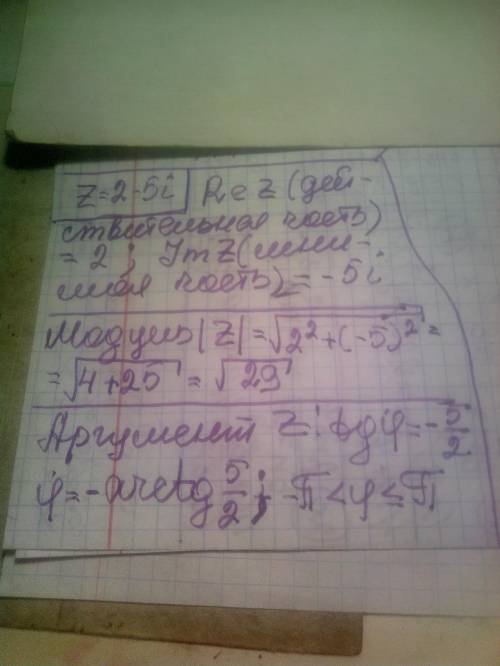 Z=2-5i Re z (дей-
ствительная часть)
= 2 ; Jm Z (мни-
мая часть) = -5i
Модуль |Z| = √(2²+(-5)²) =
= √(4+25) = √29
Аргумент Z: tgφ = -5/2
φ = -arctg 5/2; -π < φ ≤ π